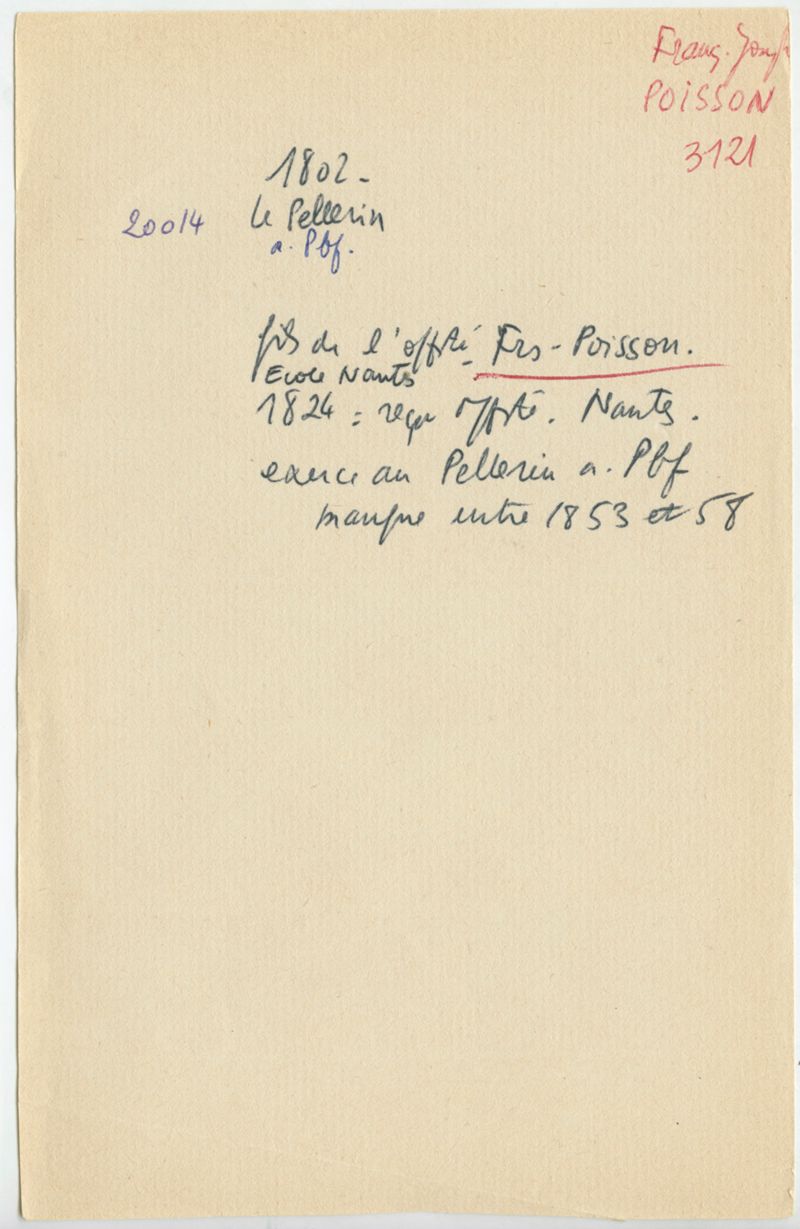 Franç. Joseph
POISSON
3121
1802 -
20014 Le Pellerin
a. Pbf.
fils de l'offté Frs - Poisson.
Ecole Nantes
1824 = reçu offté. Nantes.
exerce au Pellerin a. Pbf
manque entre 1853 et 58